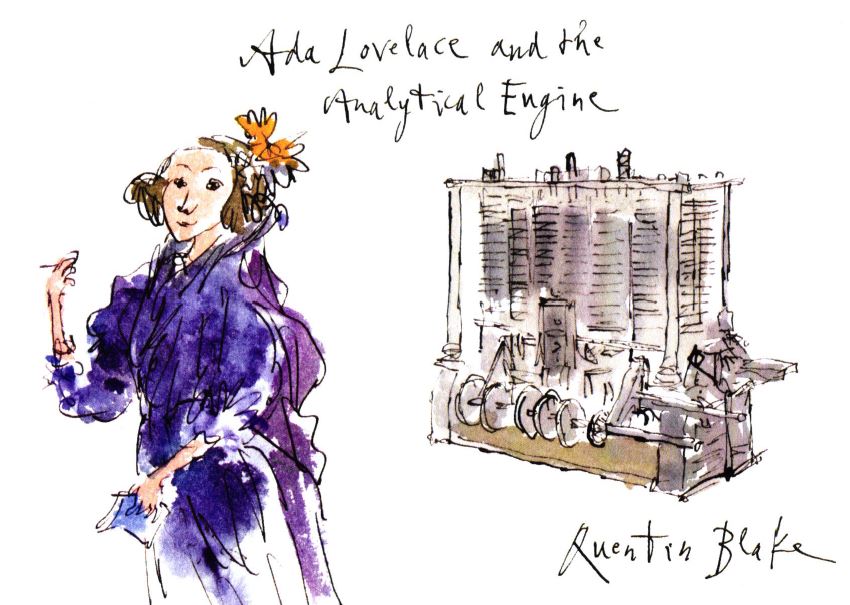 Ada Lovelace and the
Analytical Engine
Quentin Blake